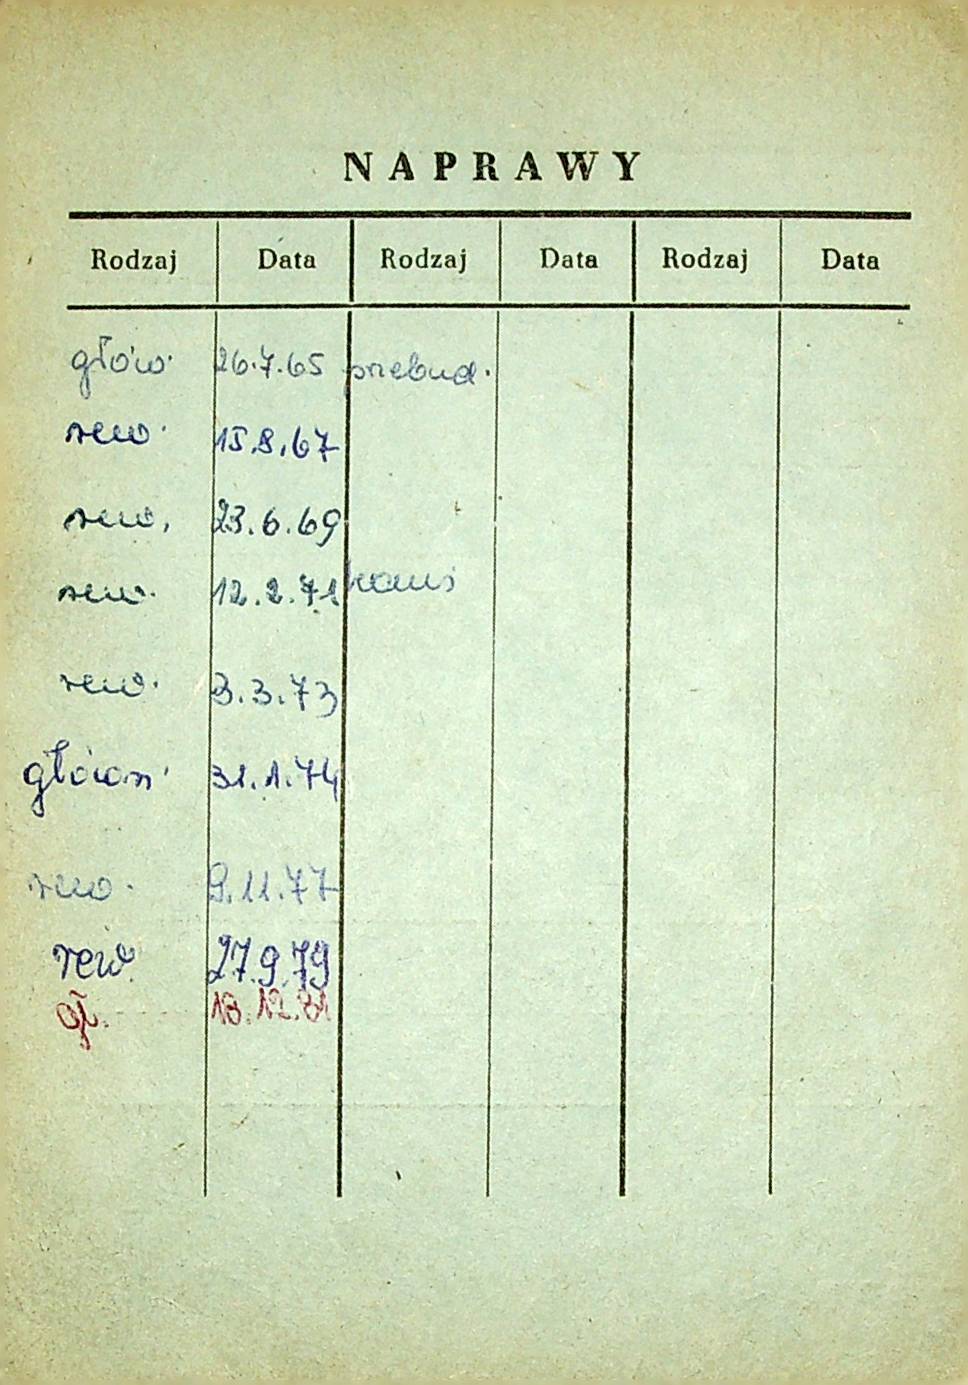 NAPRAWY
Rodzaj Data Rodzaj Data Rodzaj Data
głów. 26.7.65 przebud.
rew. 15.8.67
rew. 23.6.69
rew. 12.2.71
rew. 3.3.73
główn. 31.1.74
rew. 9.11.77
rew. 27.9.79
gł. 18.12.81